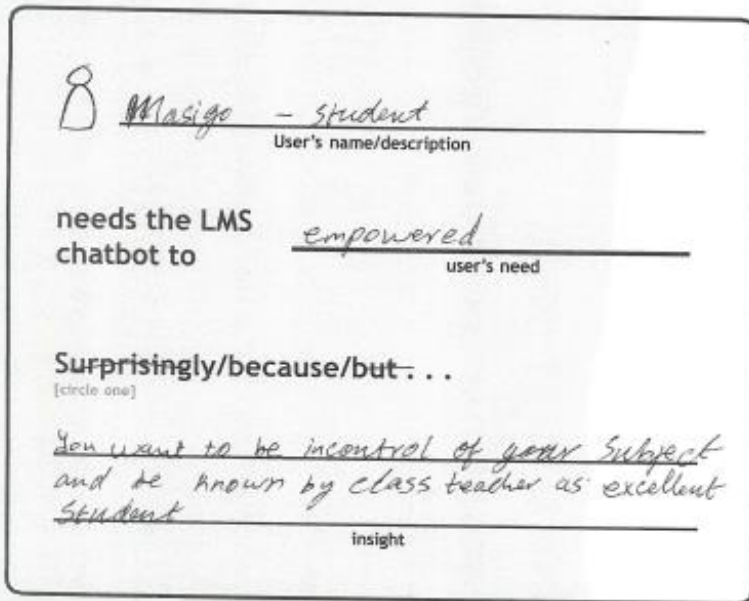 Masigo - student
User's name/description
needs the LMS
chatbot to
empowered
user's need
Surprisingly/because/but...
[circle one]
You want to be incontrol of your Subject
and be known by class teacher as excellent
Student
insight